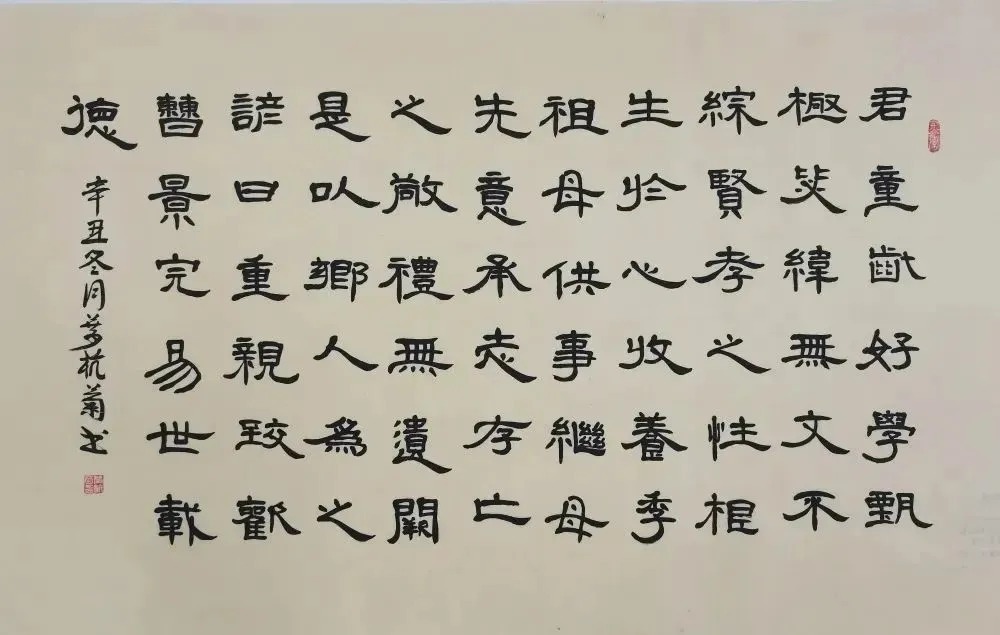 君童齔好學甄
極毖緯無文不
綜賢孝之性根
生於心收養季
祖母供事繼母
先意承志存亡
之敬禮無遺闕
是以鄉人為之
諺曰重親致歡
曹景完易世載
德
辛丑冬月杭菊书